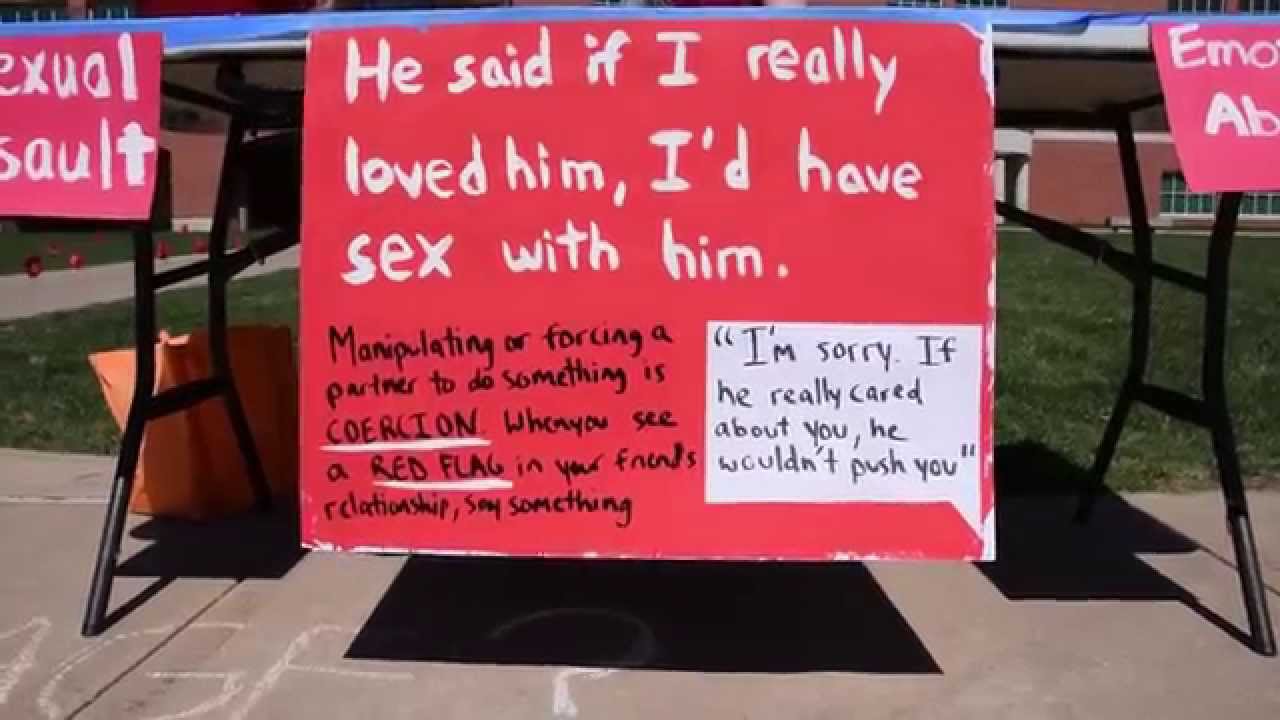 exual
sault
He said if I really
loved him, I'd have
sex with him.
Manipulating or forcing a
partner to do something is
COERCION. When you see
a RED FLAG in your friend's
relationship, say something
"I'm sorry. If
he really cared
about you, he
wouldn't push you"
Emo
Ab